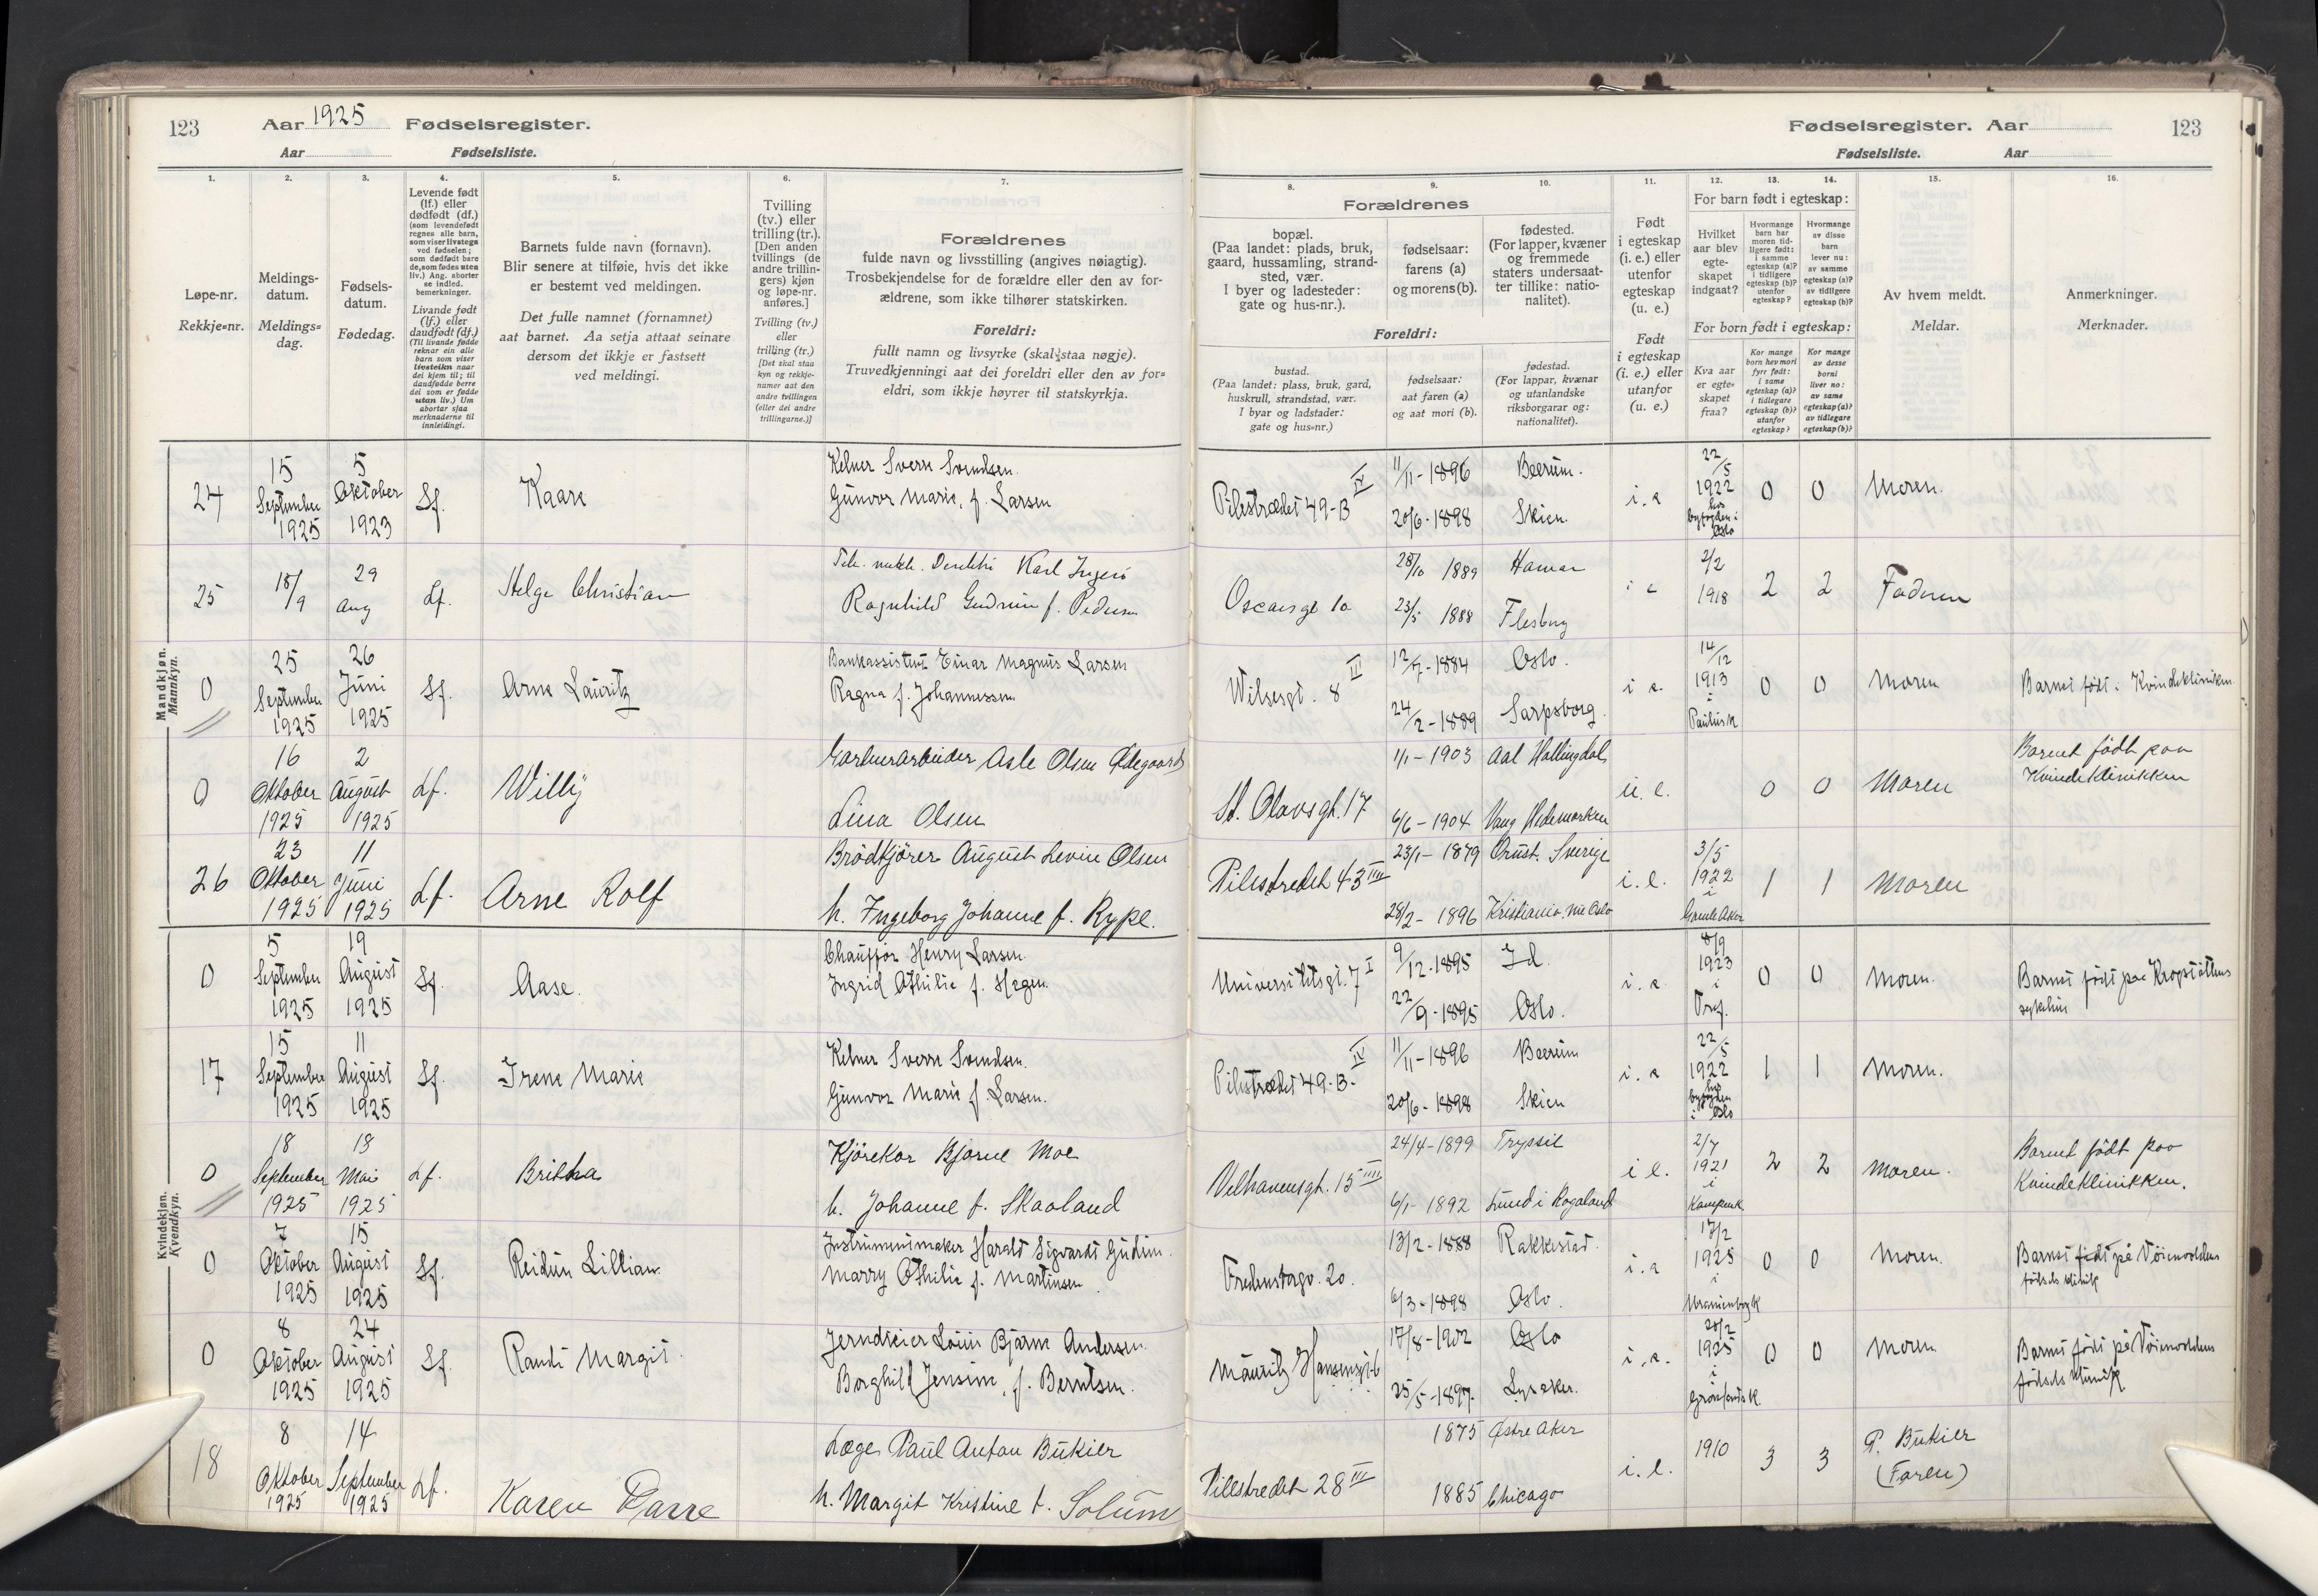 123 Aar 1925 Fødselsregister.
Aar Fødselsliste.
Fødselsregister. Aar 123
Fødselsliste. Aar
1. 2. 3. 4. 5. 6. 7.
Løpe-nr.
Rekkje=nr.
Meldings-
datum.
Meldings=
dag.
Fødsels-
datum.
Fødedag.
Levende født
(lf.) eller
dødfødt (df.)
(som levendefødt
regnes alle barn,
som viser livstegn
ved fødselen;
som dødfødt bare
de, som fødes uten
liv.) Ang. aborter
se indled.
bemerkninger.
Livande født
(lf.) eller
daudfødt (df.)
(Til livande fødde
reknar ein alle
barn som viser
livsteikn naar
dei kjem til; til
daudfødde berre
dei som er fødde
utan liv.) Um
abortar sjaa
merknaderne til
innleidingi.
Barnets fulde navn (fornavn).
Blir senere at tilføie, hvis det ikke
er bestemt ved meldingen.
Det fulle namnet (fornamnet)
aat barnet. Aa setja attaat seinare
dersom det ikkje er fastsett
ved meldingi.
Tvilling
(tv.) eller
trilling (tr.).
[Den anden
tvillings (de
andre trillin-
gers) kjøn
og løpe-nr.
anføres.]
Tvilling (tv.)
eller
trilling (tr.)
[Det skal staa
kyn og rekkje-
numer aat den
andre tvillingen
(eller dei andre
trillingarne.)]
Forældrenes
fulde navn og livsstilling (angives nøiagtig).
Trosbekjendelse for de forældre eller den av for-
ældrene, som ikke tilhører statskirken.
Foreldri:
fullt namn og livsyrke (skal staa nøgje).
Truvedkjenningi aat dei foreldri eller den av for=
eldri, som ikkje høyrer til statskyrkja.
8. 9. 10. 11. 12. 13. 14. 15. 16.
Forældrenes
bopæl.
(Paa landet: plads, bruk,
gaard, hussamling, strand-
sted, vær.
I byer og ladesteder:
gate og hus-nr.).
fødselsaar:
farens (a)
og morens (b).
fødested.
(For lapper, kvæner
og fremmede
staters undersaat-
ter tillike: natio-
nalitet).
Foreldri:
bustad.
(Paa landet: plass, bruk, gard,
huskrull, strandstad, vær.
I byar og ladstader:
gate og hus=nr.)
fødselsaar:
aat faren (a)
og aat mori (b).
fødestad.
(For lappar, kvænar
og utanlandske
riksborgarar og:
nationalitet).
Født
i egteskap
(i. e.) eller
utenfor
egteskap
(u. e.)
Født
i egteskap
(i. e.) eller
utanfor
(u. e.)
For barn født i egteskap:
Hvilket
aar blev
egte-
skapet
indgaat?
Hvormange
barn har
moren tid-
ligere født:
i samme
egteskap (a)?
i tidligere
egteskap (b)?
utenfor
egteskap?
Hvormange
av disse
barn
lever nu:
av samme
egteskap (a)?
av tidligere
egteskap (b)?
For born født i egteskap:
Kva aar
er egte=
skapet
fraa?
Kor mange
born hev mori
fyrr født:
i same
egteskap (a)?
i tidlegare
egteskap (b)?
utanfor
egteskap?
Kor mange
av desse
borni
liver no:
av same
egteskap (a)?
av tidlegare
egteskap (b)?
Av hvem meldt.
Meldar.
Anmerkninger.
Merknader.
Mandkjøn.
Mannkyn.
24 15 September 1925 5 Oktober 1923 Lf. Kaare
Kelner Sverre Svendsen.
Gunvor Marie, f. Larsen
Pilestrædet 49-B IV
11/11-1896 Bærum.
20/6-1898 Skien.
i.e 22/5 1922 hos byfogden i Oslo 0 0 Moren.
25 18/9 29 Aug Lf. Helge Christian
Karl
Ragnhild Gudrun f. Pedersen
Oscarsgt 10
28/10 1889 Hamar
23/5 1888 Flesberg
i e 2/2 1918 2 2 Faderen
0 25 September 1925 26 Juni 1925 Lf. Arne Lauritz
Bankassistent Einar Magnus Larsen
Ragna f. Johannessen
Wilsesgt. 8 III
12/7-1884 Oslo.
24/2-1889 Sarpsborg.
i e. 14/12 1913 i Paulusk 0 0 Moren Barnet født i Kvindeklinikken.
0 16 Oktober 1925 2 August 1925 Lf. Willy
Gartnerarbeider Asle Olsen Ødegaard
Lina Olsen
St. Olavsgt. 17
1/1-1903 Aal Hallingdal
6/6-1904 Vang Hedemarken
u. e. 0 0 Moren
Barnet født paa
Kvindeklinikken
26 23 Oktober 1925 11 Juni 1925 Lf. Arne Rolf
Brødkjører August Levin Olsen
h. Ingeborg Johanne f. Rype.
Pilestredet 43 III
23/1-1879 Orust. Sverige
28/2-1896 Kristiania, nu Oslo
i. e. 3/5 1922 i Gamle Aker 1 1 Moren
Kvindekjøn.
Kvendkyn.
0 5 September 1925 19 August 1925 Lf. Aase.
Chauffør Henry Larsen.
Ingrid Othilie f. Hagen.
Universitetsgt. 7 I
9/12-1895 Id.
22/9-1895 Oslo.
i. e. 8/9 1923 i Tref. 0 0 Moren.
Barnet født paa Krogstøttens
sykehus
17 15 September 1925 11 August 1925 Lf. Irene Marie
Kelner Sverre Svendsen.
Gunvor Marie f. Larsen.
Pilestrædet 49-B- IV
11/11-1896 Bærum
20/6-1898 Skien
i. e 22/5 1922 hos byfogden i Oslo 1 1 Moren.
0 18 September 1925 19 Mai 1925 Lf. Britha
Kjørekar Bjarne Moe
h. Johanne f. Skaoland
Welhavensgt. 15 IIII
24/4-1899 Trysil
6/1-1892 Lund i Rogaland
i e. 2/7 1921 i Kampenk. 2 2 Moren.
Barnet født paa
Kvindeklinikken.
0 7 Oktober 1925 15 August 1925 Lf. Reidun Lillian
Instrumentmaker Harald Sigvardt Gudim.
Marry Othilie f. Martinsen
Fredensborgv. 20.
13/2-1888 Rakkestad.
6/3-1898 Oslo.
i. e 17/2 1925 i Uranienborgk 0 0 Moren.
Barnet født på Tøienvoldens
fødselsklinik
0 8 Oktober 1925 24 August 1925 Lf. Randi Margit.
Jerndreier Louis Bjarne Andersen.
Borghild Jensine, f. Berntsen.
Mauritz Hansensgt 6
17/8-1902 Oslo
25/5-1897. Lysaker.
i. e. 28/2 1925 i Grønlandsk. 0 0 Moren
Barnet født på Tøienvoldens
fødselsklinik
18 8 Oktober 1925 14 September 1925 Lf. Karen Darre
Læge Paul Anton Bukier
h. Margit Kristine f. Solum
Pilestredet 28 III
1875 Østre Aker
1885 Chicago
i. e. 1910 3 3
P. Bukier
(Faren)